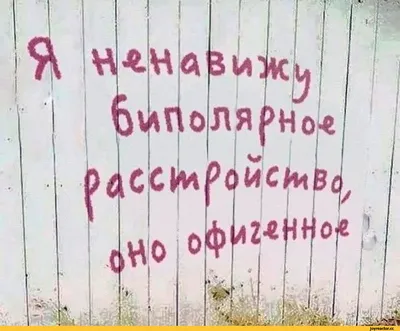 Я ненавижу
биполярное
расстройство,
оно офигенное
joyreactor.cc